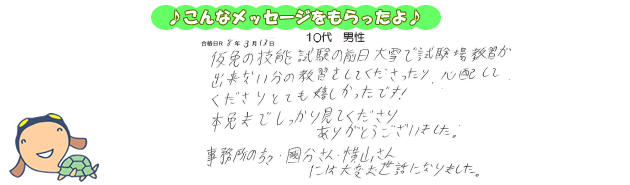 ♪こんなメッセージをもらったよ♪
10代 男性
合格日R 8年 3月 17日
仮免の技能試験の前日大雪で試験場教習が
出来ない分の教習をしてくださったり、心配して
くださりとても嬉しかったです!
本免までしっかり見てくださり
ありがとうございました。
事務所の方々・國分さん・横山さん
には大変お世話になりました。